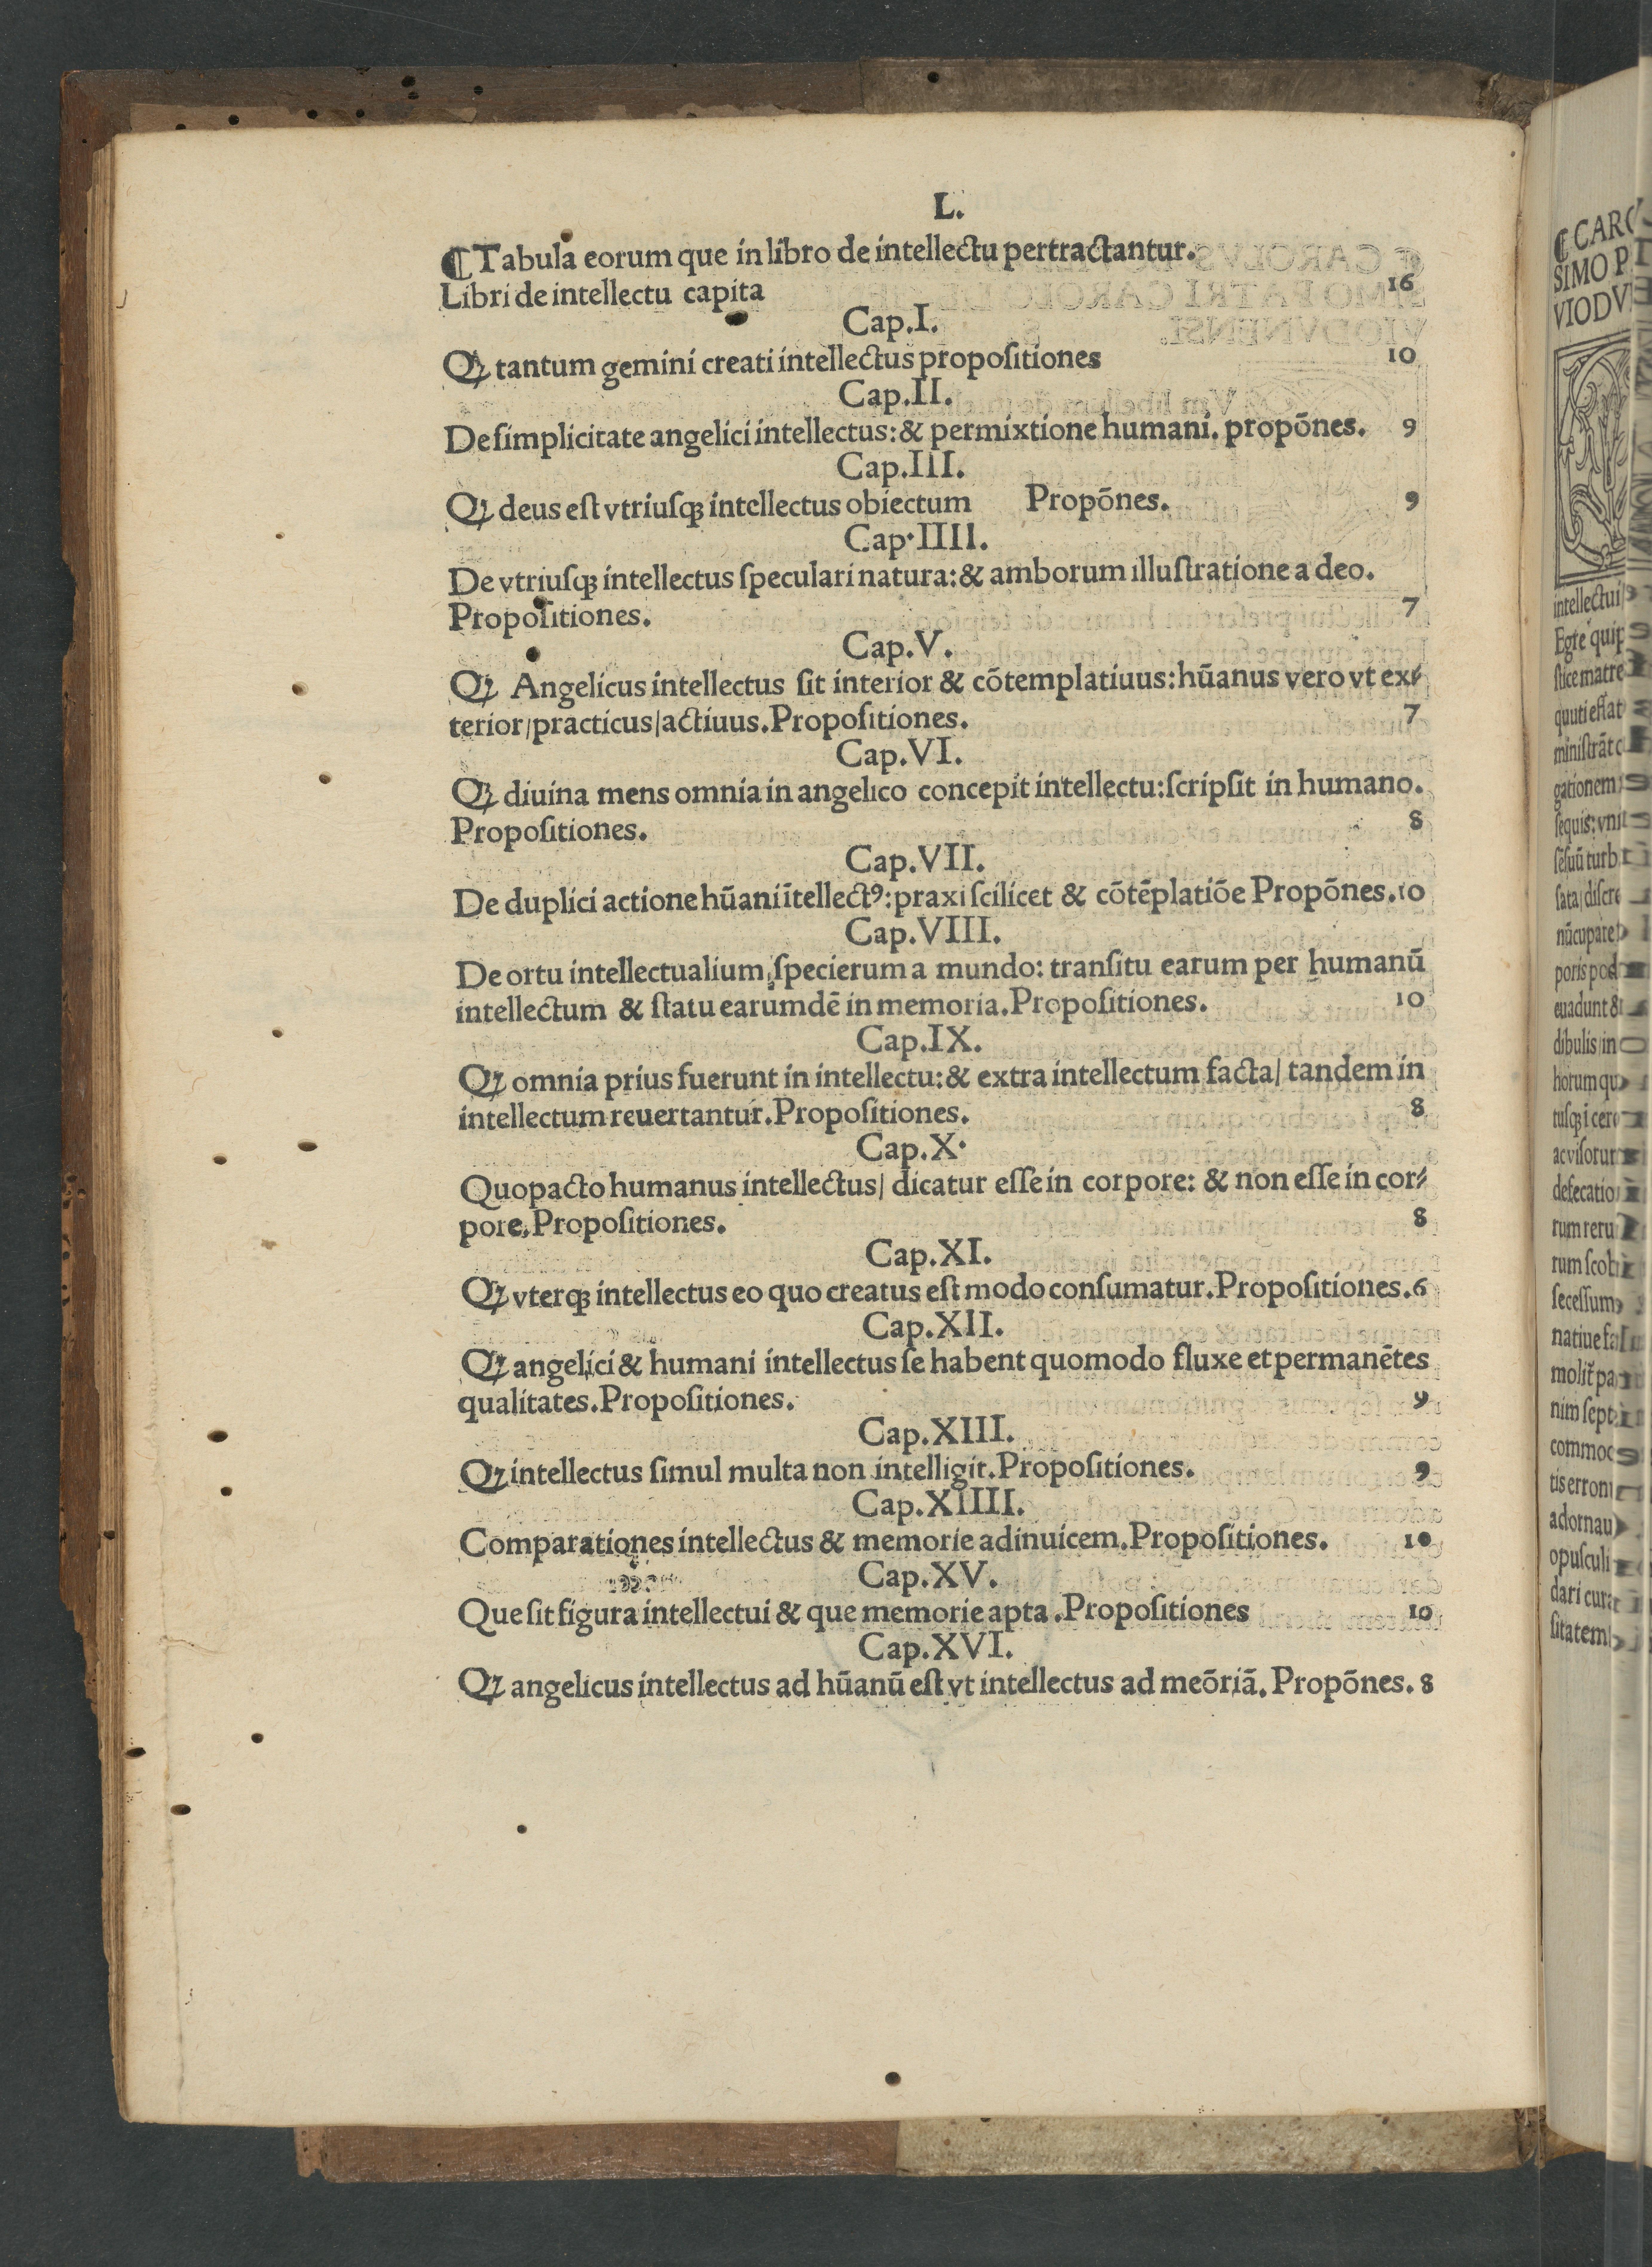 L.
¶Tabula eorum que in libro de intellectu pertractantur.
Libri de intellectu capita 16
Cap.I.
Qꝫ tantum gemini creati intellectus propoſitiones 10
Cap.II.
De ſimplicitate angelici intellectus:& permixtione humani. propōnes. 9
Cap.III.
Qꝫ deus eſt vtriuſqꝫ intellectus obiectum Propōnes. 9
Cap.IIII.
De vtriuſqꝫ intellectus ſpeculari natura:& amborum illuſtratione a deo.
Propoſitiones. 7
Cap.V.
Qꝫ Angelicus intellectus ſit interior & cōtemplatiuus:hūanus vero vt ex⸗
terior/practicus/actiuus.Propoſitiones. 7
Cap.VI.
Qꝫ diuina mens omnia in angelico concepit intellectu:ſcripſit in humano.
Propoſitiones. 8
Cap.VII.
De duplici actione hūani ītellectꝰ:praxi ſcilicet & cōtēplatiōe Propōnes.10
Cap.VIII.
De ortu intellectualium ſpecierum a mundo: tranſitu earum per humanū
intellectum & ſtatu earumdē in memoria.Propoſitiones. 10
Cap.IX.
Qꝫ omnia prius fuerunt in intellectu:& extra intellectum facta/ tandem in
intellectum reuertantur.Propoſitiones. 8
Cap.X.
Quopacto humanus intellectus/ dicatur eſſe in corpore: & non eſſe in cor⸗
pore.Propoſitiones. 8
Cap.XI.
Qꝫ vterqꝫ intellectus eo quo creatus eſt modo conſumatur.Propoſitiones.6
Cap.XII.
Qꝫ angelici & humani intellectus ſe habent quomodo fluxe et permanētes
qualitates.Propoſitiones. 9
Cap.XIII.
Qꝫ intellectus ſimul multa non intelligit.Propoſitiones. 9
Cap.XIIII.
Comparationes intellectus & memorie adinuicem.Propoſitiones. 10
Cap.XV.
Que ſit figura intellectui & que memorie apta.Propoſitiones 10
Cap.XVI.
Qꝫ angelicus intellectus ad hūanū eſt vt intellectus ad meōriā. Propōnes. 8